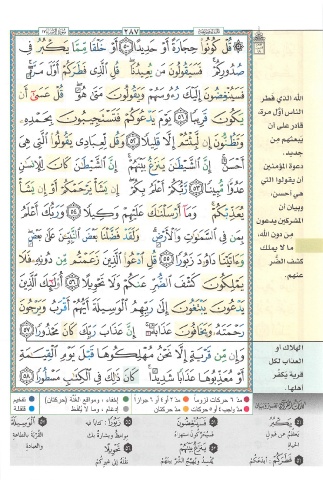 ٢٨٧
قُلْ كُونُوا۟ حِجَارَةً أَوْ حَدِيدًا ٥٠ أَوْ خَلْقًا مِّمَّا يَكْبُرُ فِى
صُدُورِكُمْ فَسَيَقُولُونَ مَن يُعِيدُنَا قُلِ ٱلَّذِى فَطَرَكُمْ أَوَّلَ مَرَّةٍ
فَسَيُنْغِضُونَ إِلَيْكَ رُءُوسَهُمْ وَيَقُولُونَ مَتَىٰ هُوَ قُلْ عَسَىٰٓ أَن
يَكُونَ قَرِيبًا ٥١ يَوْمَ يَدْعُوكُمْ فَتَسْتَجِيبُونَ بِحَمْدِهِۦ
وَتَظُنُّونَ إِن لَّبِثْتُمْ إِلَّا قَلِيلًا ٥٢ وَقُل لِّعِبَادِى يَقُولُوا۟ ٱلَّتِى هِىَ
أَحْسَنُ إِنَّ ٱلشَّيْطَـٰنَ يَنزَغُ بَيْنَهُمْ إِنَّ ٱلشَّيْطَـٰنَ كَانَ لِلْإِنسَـٰنِ
عَدُوًّا مُّبِينًا ٥٣ رَّبُّكُمْ أَعْلَمُ بِكُمْ إِن يَشَأْ يَرْحَمْكُمْ أَوْ إِن يَشَأْ
يُعَذِّبْكُمْ وَمَآ أَرْسَلْنَـٰكَ عَلَيْهِمْ وَكِيلًا ٥٤ وَرَبُّكَ أَعْلَمُ
بِمَن فِى ٱلسَّمَـٰوَٰتِ وَٱلْأَرْضِ وَلَقَدْ فَضَّلْنَا بَعْضَ ٱلنَّبِيِّـۧنَ عَلَىٰ بَعْضٍ
وَءَاتَيْنَا دَاوُۥدَ زَبُورًا ٥٥ قُلِ ٱدْعُوا۟ ٱلَّذِينَ زَعَمْتُم مِّن دُونِهِۦ فَلَا
يَمْلِكُونَ كَشْفَ ٱلضُّرِّ عَنكُمْ وَلَا تَحْوِيلًا ٥٦ أُو۟لَـٰٓئِكَ ٱلَّذِينَ
يَدْعُونَ يَبْتَغُونَ إِلَىٰ رَبِّهِمُ ٱلْوَسِيلَةَ أَيُّهُمْ أَقْرَبُ وَيَرْجُونَ
رَحْمَتَهُۥ وَيَخَافُونَ عَذَابَهُۥٓ إِنَّ عَذَابَ رَبِّكَ كَانَ مَحْذُورًا ٥٧
وَإِن مِّن قَرْيَةٍ إِلَّا نَحْنُ مُهْلِكُوهَا قَبْلَ يَوْمِ ٱلْقِيَـٰمَةِ
أَوْ مُعَذِّبُوهَا عَذَابًا شَدِيدًا كَانَ ذَٰلِكَ فِى ٱلْكِتَـٰبِ مَسْطُورًا ٥٨
الله الذي فطر
الناس أوّل مرة،
قادر على أن
يبعثهم من
جديد.
دعوة المؤمنين
أن يقولوا التي
هي أحسن،
وبيان أن
المشركين يدعون
من دون الله،
ما لا يملك
كشف الضّر
عنهم.
الهلاك أو
العذاب لكل
قرية يكفر
أهلها.
مد ٦ حركات لزوماً
مد ٢ أو ٤ أو ٦ جوازاً
إخفاء، ومواقع الغنّة (حركتان)
تفخيم
مد واجب ٤ أو ٥ حركات
مد حركتان
إدغام، وما لا يُلفظ
قلقلة